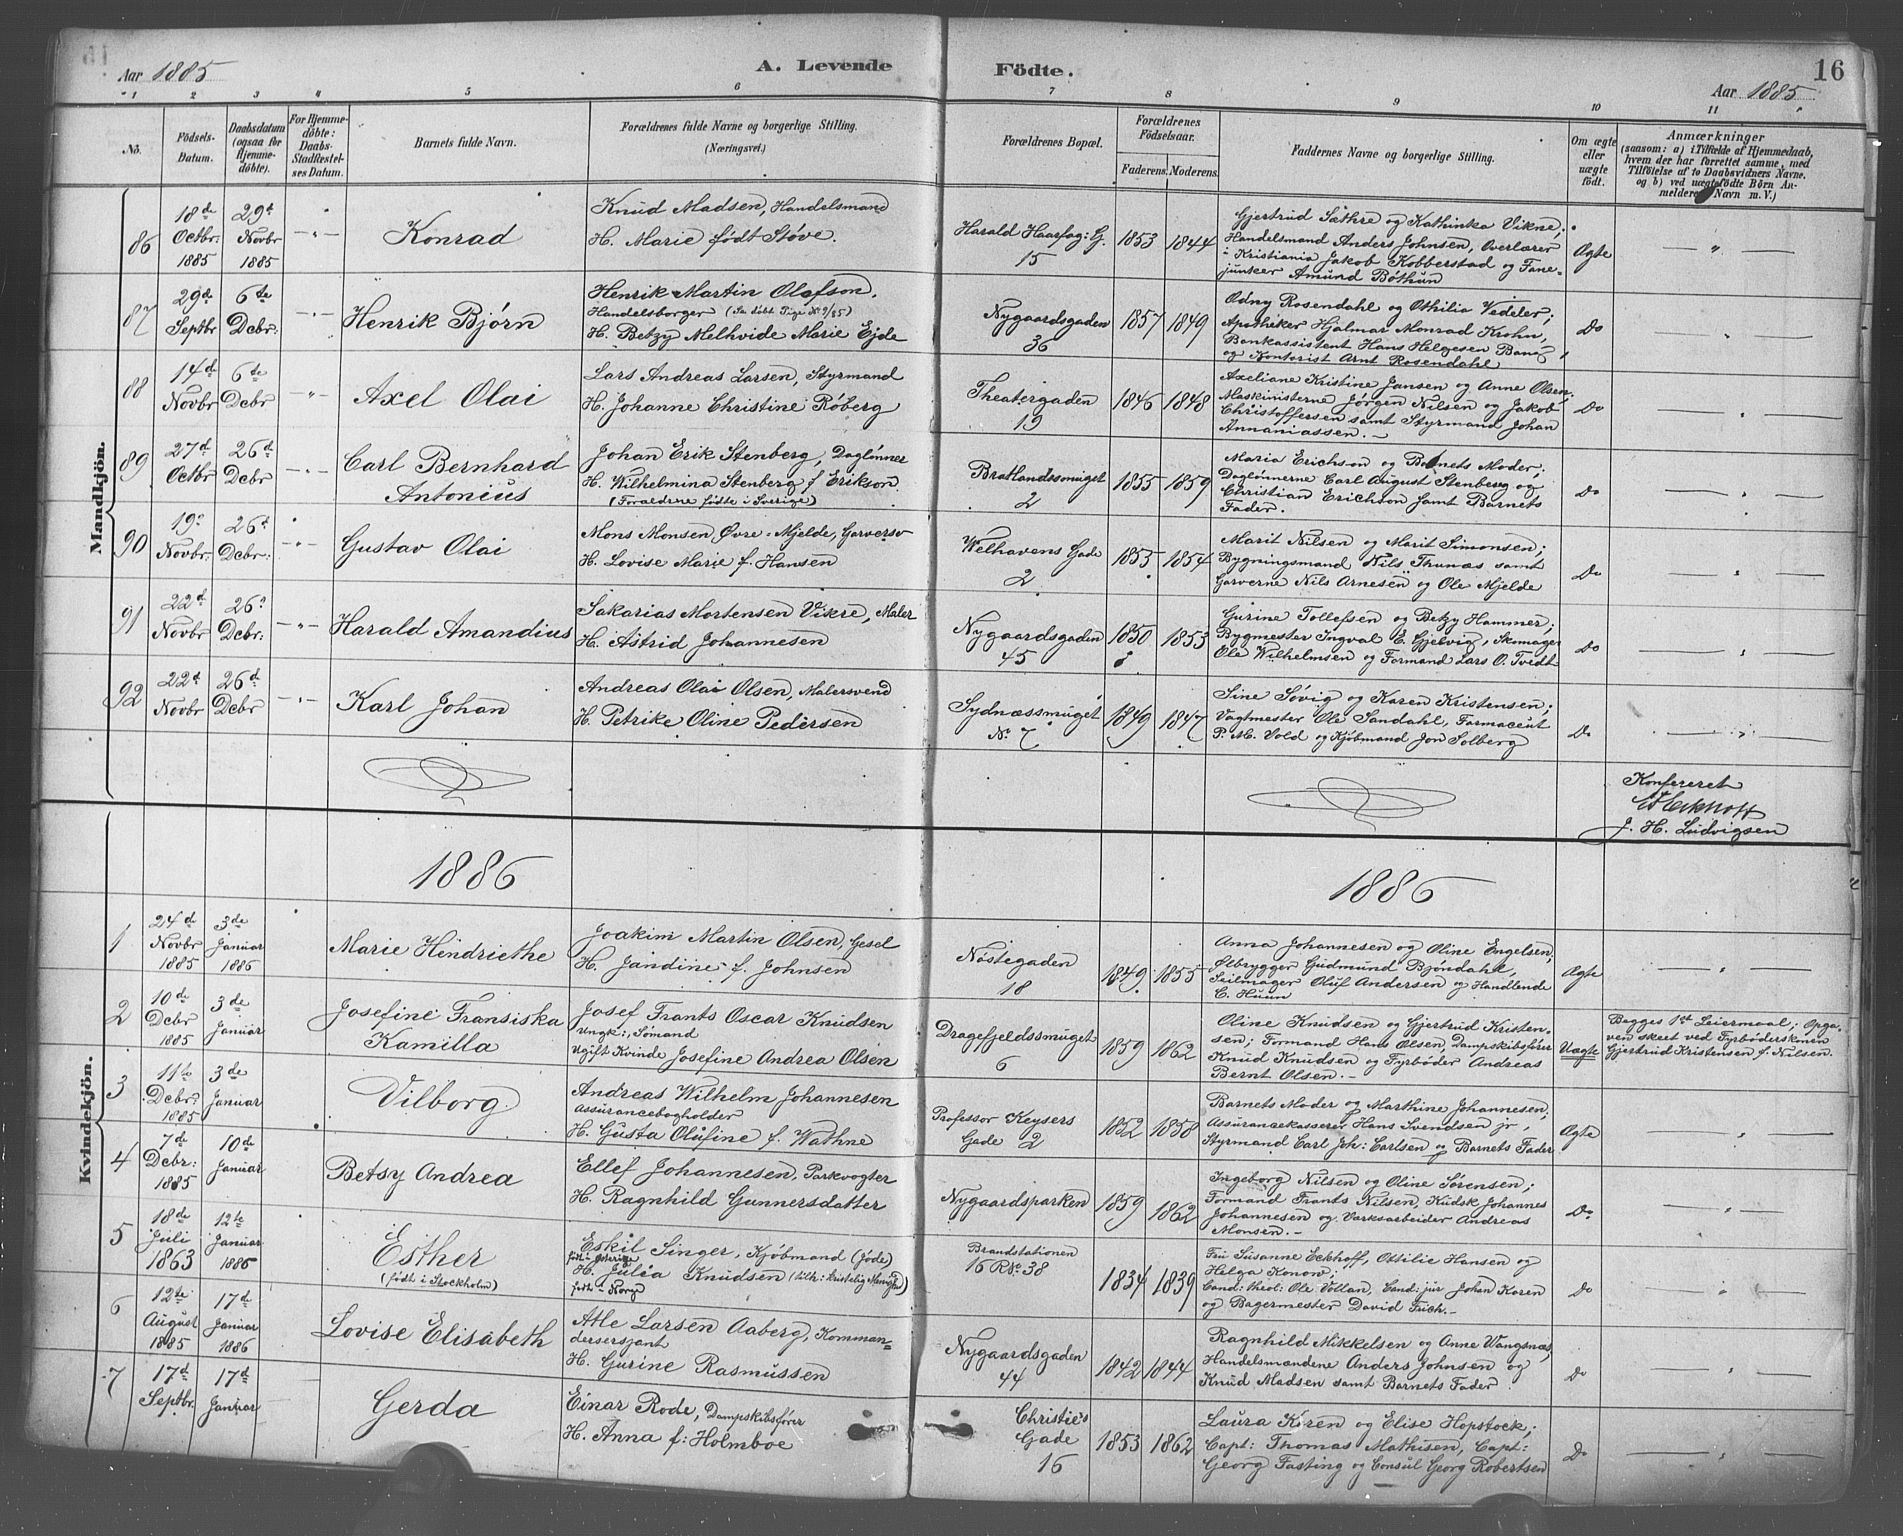 Aar 1885
A. Levende Födte.
Aar 1885.
16
1 2 3 4 5 6 7 8 9 10 11
No.
Födsels-Datum.
Daabsdatum (ogsaa for Hjemme-döbte).
For Hjemme-döbte: Daabs-Stadfæstel-ses Datum.
Barnets fulde Navn.
Forældrenes fulde Navne og borgerlige Stilling. (Næringsvei.)
Forældrenes Bopæl.
Forældrenes Födselsaar.
Faderens. Moderens.
Faddernes Navne og borgerlige Stilling.
Om ægte eller uægte födt.
Anmærkninger
(saasom: a) i Tilfælde af Hjemmedaab, hvem der har forrettet samme, med Tilföielse af to Daabsvidners Navne. og b) ved uægtefödte Börn Anmelderens Navn m. V.)
Mandkjön.
86
18de Octbr: 1885
29de Novbr 1885
Konrad
Knud Madsen, Handelsmand
H. Marie født Støve.
Harald Haarfag: G. 15
1853 1844
Gjertrud Sæthre og Kathinka Vikne;
Handelsmand Anders Johnsen, Overlærer
i Kristiania Jakob Kobberstad og Fane-
junker Amund Bøthun
Ægte
87
29de Septbr
6te Dcbr:
Henrik Bjørn
Henrik Martin Olafson,
Handelsborger (Se døbt Pige No 9/85)
H. Betzy Melhvide Marie Ejde
Nygaardsgaden 36
1857 1849
Odny Rosendahl og Othilia Vedeler;
Apotheker Hjalmar Monrad Krohn,
Bankassistent Hans Helgesen Bang,
og Kontorist Arnt Rosendahl
Do
88
14de Novbr
6te Dcbr
Axel Olai
Lars Andreas Larsen, Styrmand
H. Johanne Christine Røberg
Theatergaden 19
1846 1848
Axeliane Kristine Jansen og Anne Olsen,
Maskinisterne Jørgen Nilsen og Jakob
Christoffersen samt Styrmand Johan
Annaniassen.
Do
89
27de Octbr
26de Dcbr
Carl Bernhard
Antonius
Johan Erik Stenberg, Daglønner
H. Wilhelmina Stenberg f. Erikson.
(Forældrene fødte i Sverige)
Bratlandssmuget 2
1855 1859
Maria Erichson og Barnets Moder;
Daglønnerne Carl August Stenberg og
Christian Erichson samt Barnets
Fader.
Do
90
19de Novbr.
26de Dcbr:
Gustav Olai
Mons Monsen Øvre-Mjelde, Garversv
H. Lovise Marie f. Hansen
Welhavens Gade 2
1855 1854
Marit Nilsen og Marit Simonsen;
Bygningsmand Nils Thunæs samt
Garverne Nils Arnesen og Ole Mjelde
Do
91
22de Novbr
26de Dcbr:
Harald Amandius
Sakarias Mortensen Vikre, Maler
H. Astrid Johannesen
Nygaardsgaden 45
1850 1853
Gurine Tollefsen og Betzy Hammer;
Bygmester Ingval E. Gjelvig, Skomager
Ole Wilhelmsen og Formand Lars O. Tvidt
Do
92
22de Novbr
26de Dcbr
Karl Johan
Andreas Olai Olsen, Malersvend
H. Petrike Oline Pedersen
Sydnæssmuget No 7
1849 1847
Sine Søvig og Karen Kristensen;
Vagtmester Ole Sandahl, Farmaceut
P. M. Vold og Kjøbmand Jon Solberg
Do
Konfereret
Eckhoff
J. H. Ludvigsen
1886
1886
Kvindekjön.
1
24de Novbr 1885
3de Januar 1886
Marie Hendriethe
Joakim Martin Olsen, Gesel
H. Jandine f. Johnsen
Nøstegaden 18
1849 1855
Anna Johannesen og Oline Engelsen,
Ølbrygger Gudmund Bjøndahl,
Seilmager Oluf Andersen og Handlende
C. Huun
Ægte
2
10de Dcbr 1885
3de Januar
Josefine Fransiska
Kamilla
Josef Frants Oscar Knudsen
Ungk:, Sømand
Ugift Kvinde Josefine Andrea Olsen
Dragefjeldssmuget 6
1859 1862
Oline Knudsen og Gjertrud Kristen-
sen; Formand Hans Olsen, Dampskibsfører
Knud Knudsen og Fyrbøder Andreas
Bernt Olsen.
Uægte
Begges 1st Leiermaal; Opga-
ven skeet ved Fyrbøderskonen
Gjertrud Kristensen f. Nilsen.
3
11te Dcbr: 1885
3de Januar
Vilborg
Andreas Wilhelm Johannesen
Assurancebogholder
H. Gusta Olufine f. Wathne
Professor Keysers Gade 2
1852 1858
Barnets Moder og Marthine Johannesen,
Assurancekasserer Hans Svendsen jr,
Styrmand Carl Joh: Carlsen og Barnets Fader
Ægte
4
7de Dcbr: 1885
10de Januar
Betsy Andrea
Ellef Johannesen, Parkvogter
H. Ragnhild Gunnersdatter
Nygaardsparken
1859 1862
Ingeborg Nilsen og Oline Sørensen;
Formand Frants Nilsen, Kudsk Johannes
Johannesen og Værksarbeider Andreas
Monsen.
Do
5
18de Juli 1863
12te Januar 1886
Esther
(født i Stockholm)
Eskil Singer, Kjøbmand (Jøde)
født i Sverige
H. Julia Knudsen (tilh: kristelig Menighed)
født i Norge
Brandstationen
16 R No 38
1834 1839
Fru Susanne Eckhoff, Ottilie Hansen og
Helga Konow;
Cand: theol: Ole Vollan, Cand: jur Johan Koren
og Bagermester David Tuch.
Do
6
12te August 1885
17de Januar 1886
Lovise Elisabeth
Atle Larsen Aaberg, Komman-
dersersjant
H. Gurine Rasmussen
Nygaardsgaden 44
1842 1844
Ragnhild Mikkelsen og Anne Wangsnæs,
Handelsmændene Anders Johnsen og
Knud Madsen samt Barnets Fader.
Do
7
17de Septbr.
17de Januar
Gerda
Einar Rode, Dampskibsfører
H. Anna f: Holmboe
Christie's Gade 16
1853 1862
Laura Koren og Elise Hopstock;
Capt: Thomas Mathisen, Capt:
Georg Fasting og Consul Georg Robertsen
Do